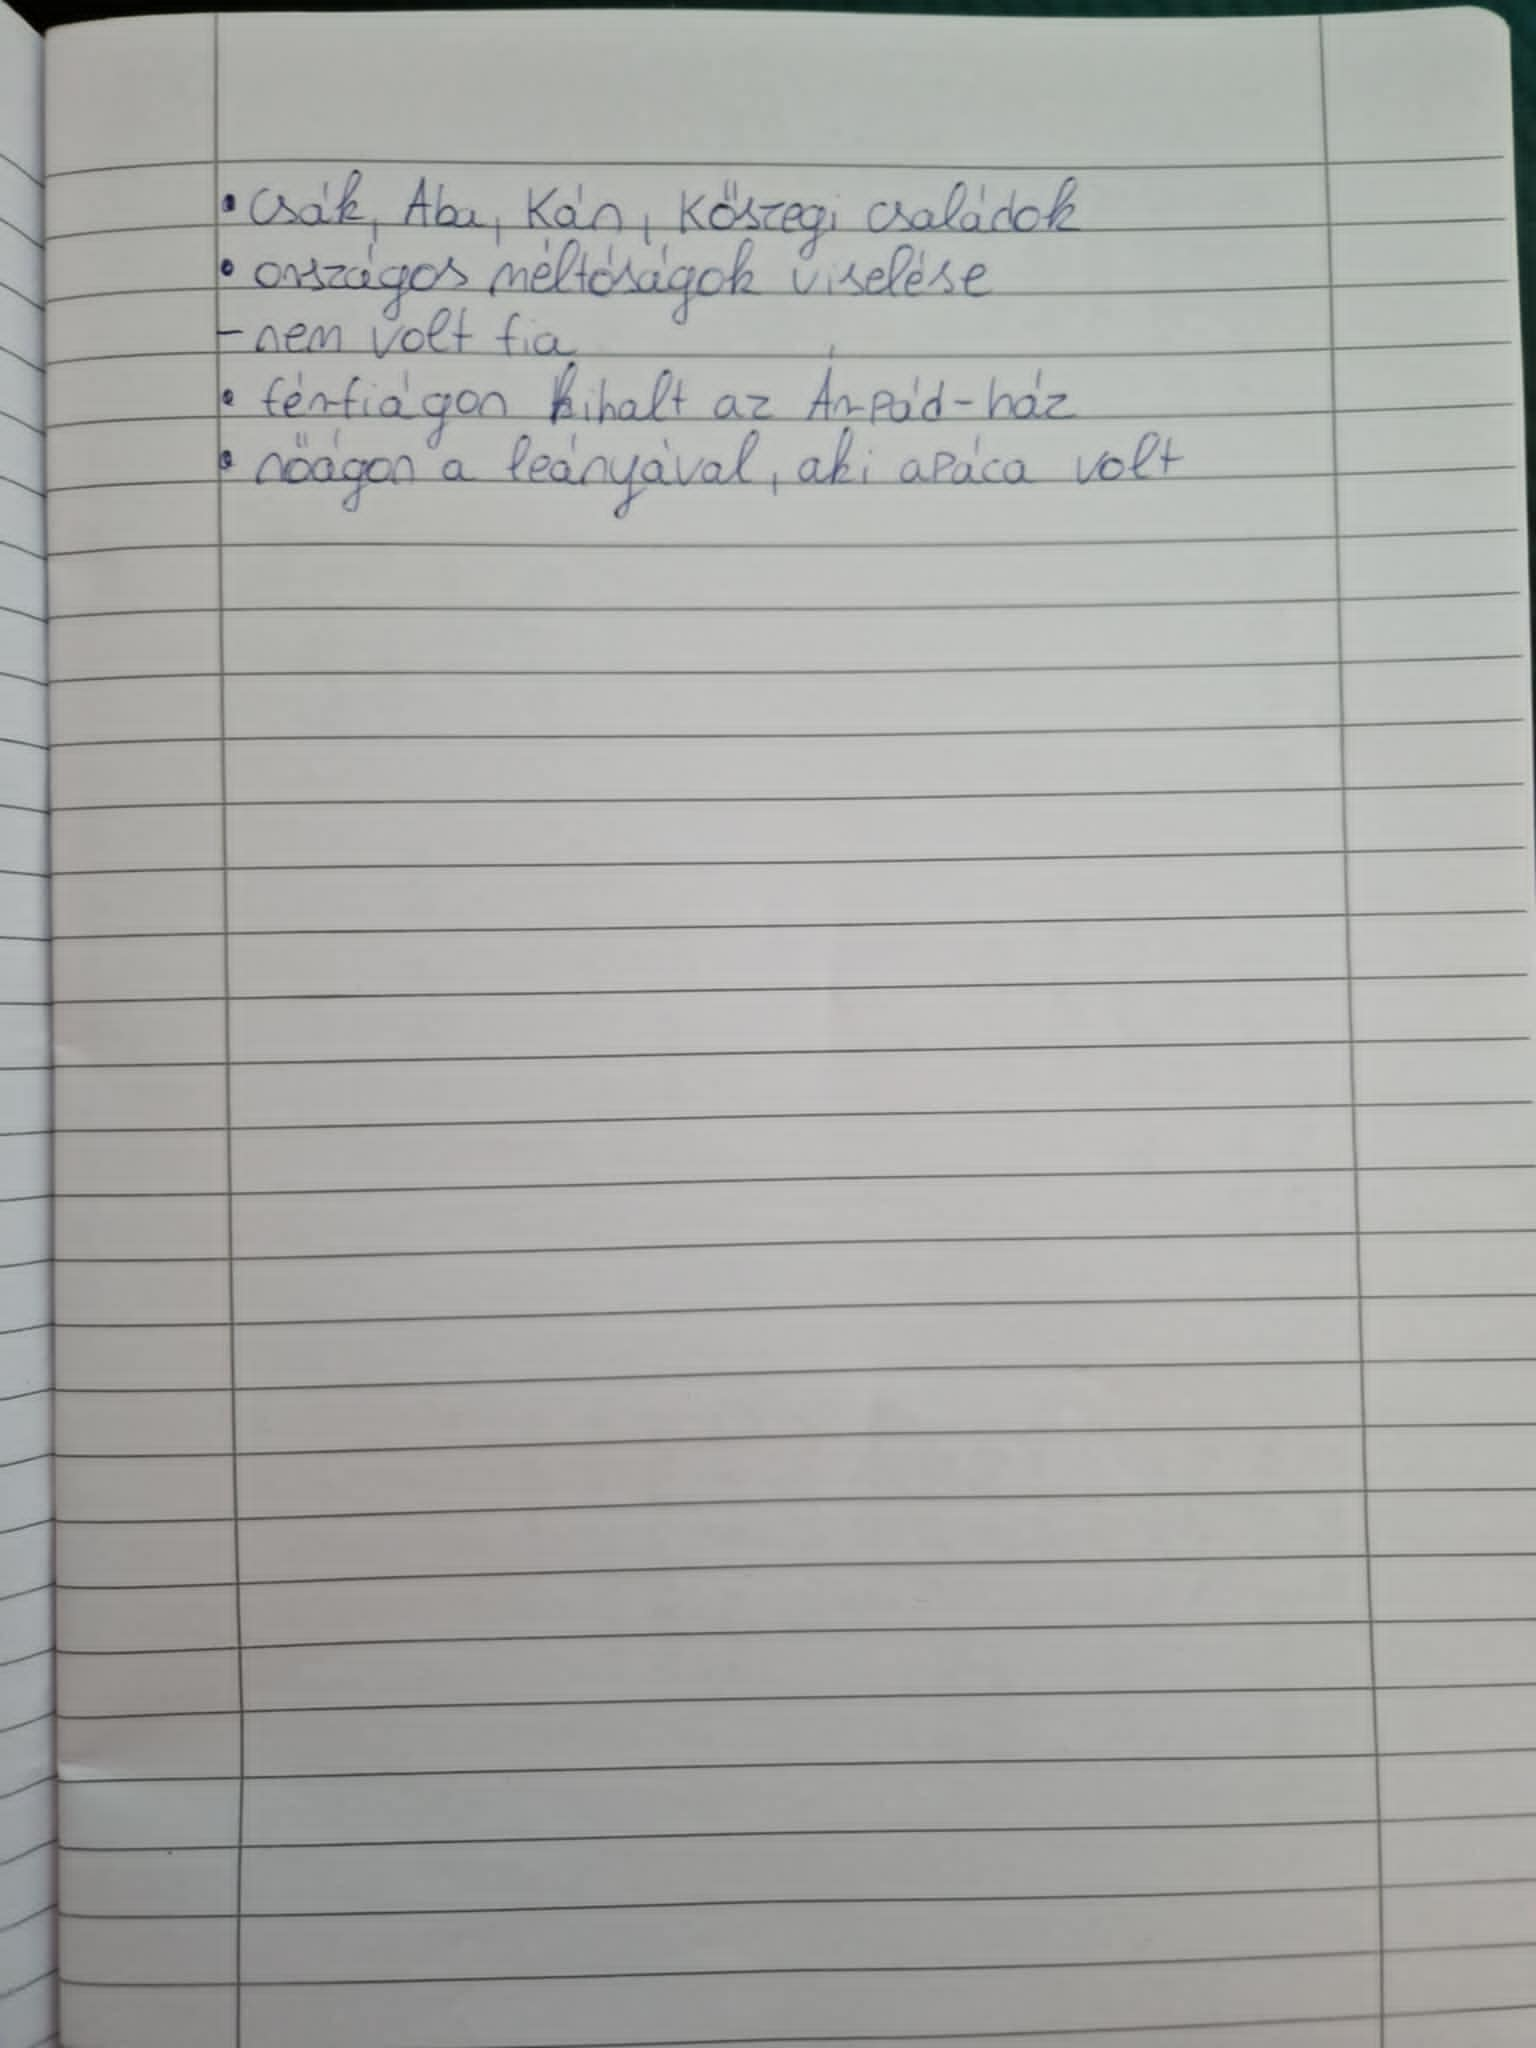 • Csák, Aba, Kán, Kőszegi családok
• országos méltóságok viselése
- nem volt fia
• férfiágon kihalt az Árpád-ház
• nőágon a leányával, aki apáca volt